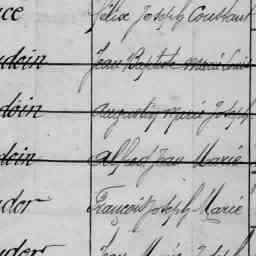 ce félix Joseph Constant
doin Jean Baptiste Marie Louis
doin Augustin Marie Joseph
doin Alfred Jean Marie
dor François Joseph Marie
dor Jean Marie Joseph